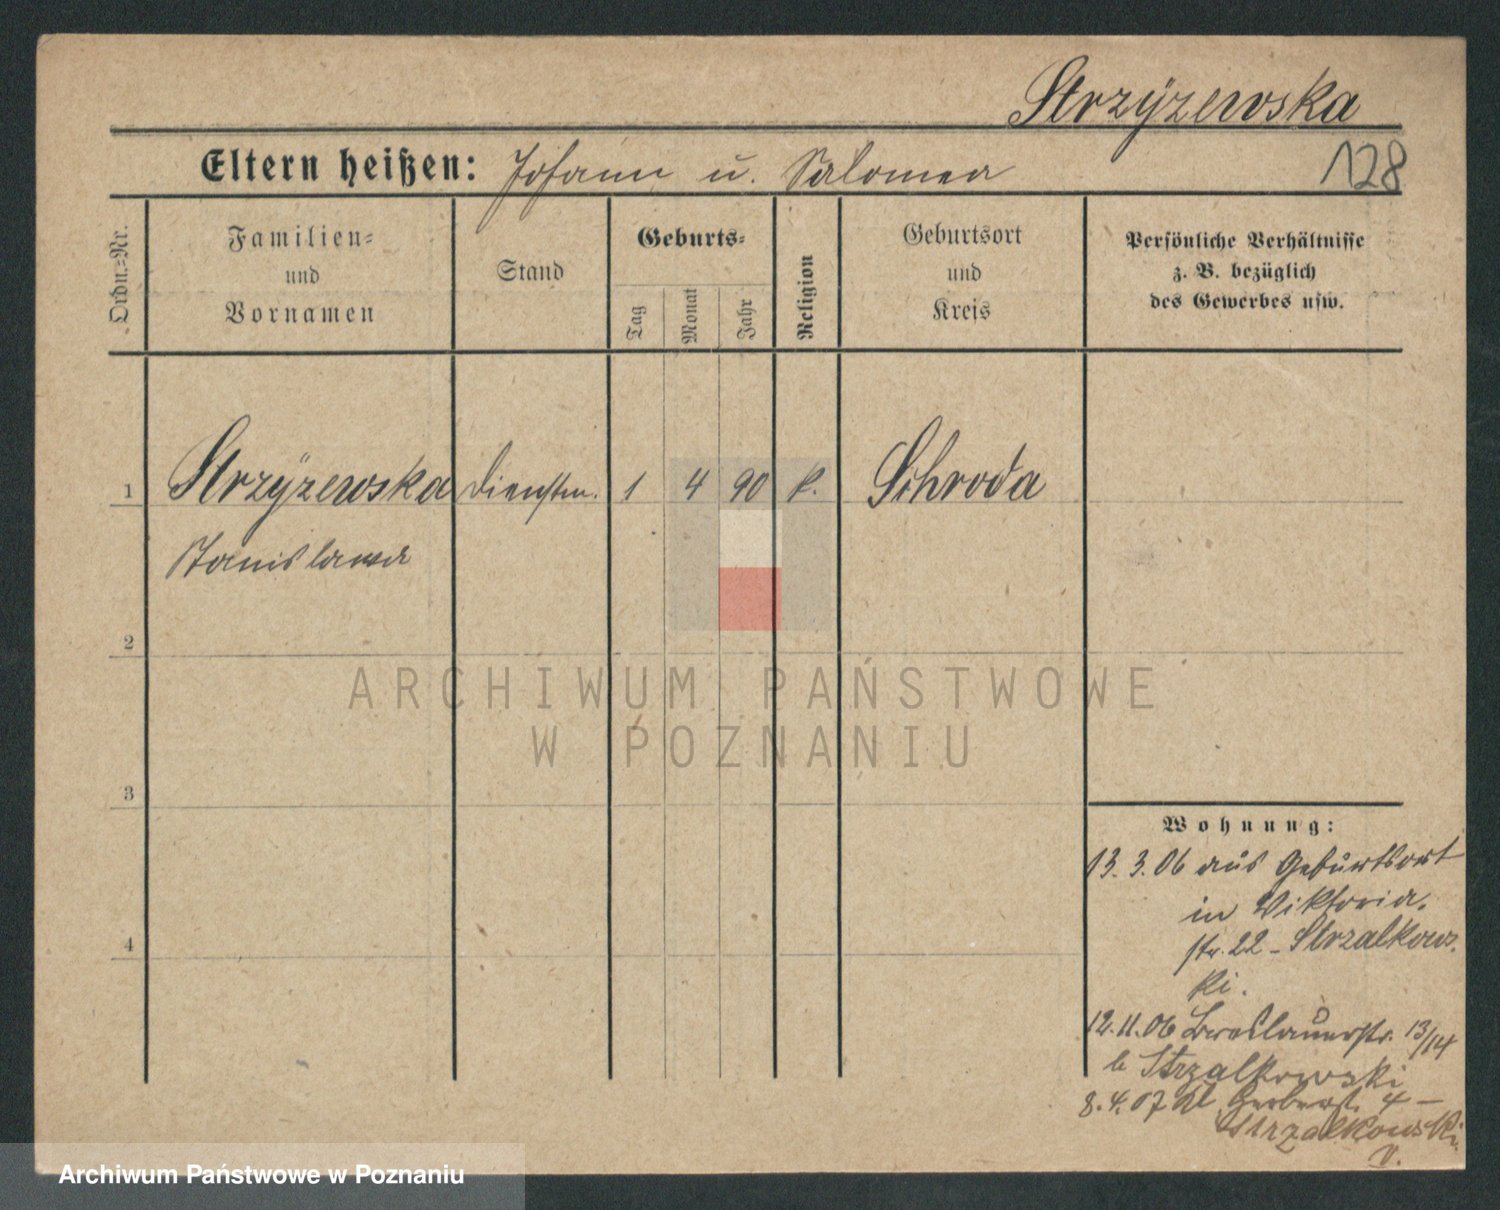 Strzyzewska
Eltern heißen: Johann u. Salomea
128
Ordn.-Nr.
Familien-
und
Vornamen
Stand
Geburts-
Tag
Monat
Jahr
Religion
Geburtsort
und
Kreis
Persönliche Verhältnisse
z. B. bezüglich
des Gewerbes usw.
1 Strzyzewska Dienstm. 1 4 90 k. Schroda
Stanislawa
2
3
4
ARCHIWUM PAŃSTWOWE
W POZNANIU
Wohnung:
13. 3. 06 aus Geburtsort
in Viktoria-
str. 22 - Strzalkows-
ki.
12. 11. 06 Breslauerstr. 13/14
b Strzalkowski
8. 4. 07 Kl Gerberst. 4 -
Strzalkowski
Archiwum Państwowe w Poznaniu